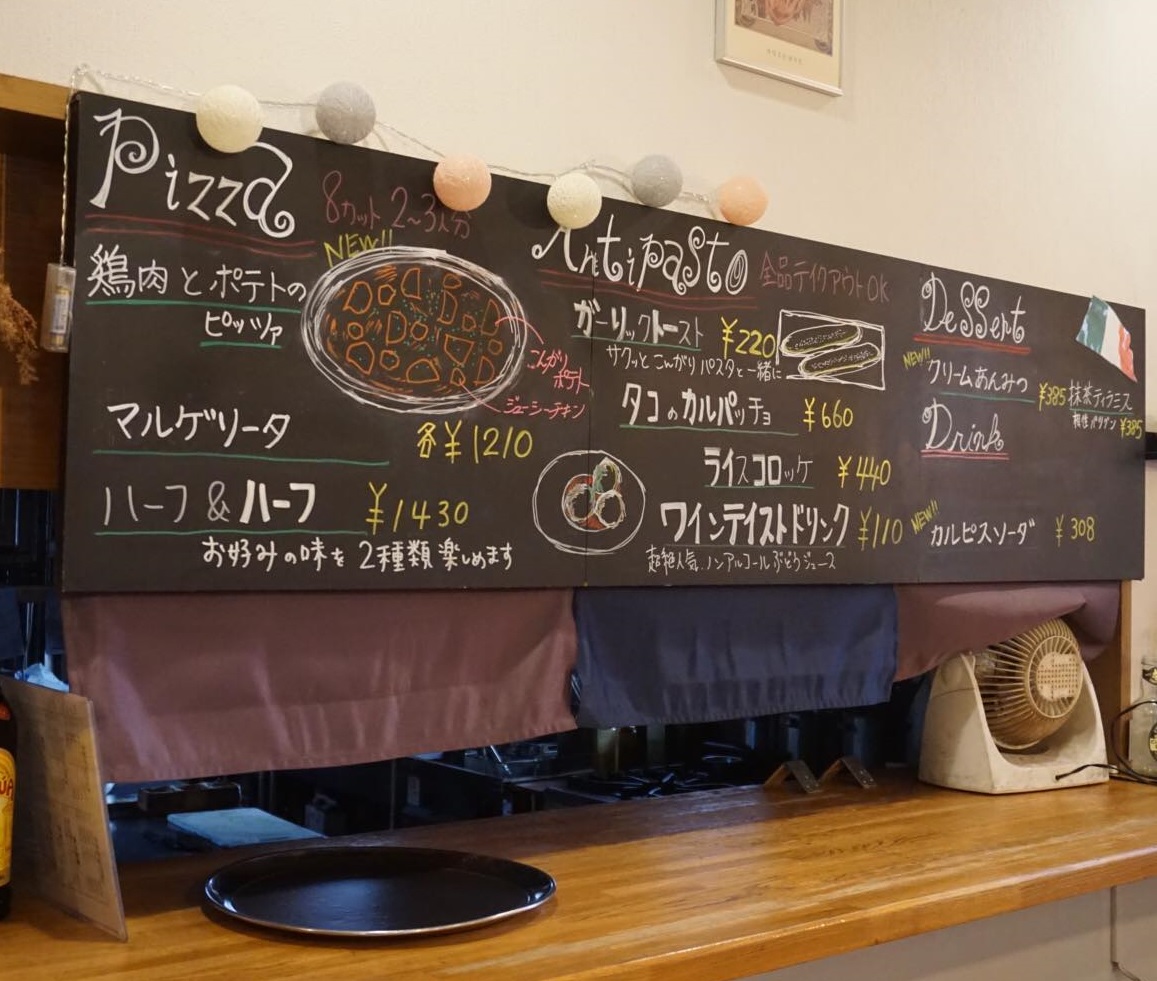 Pizza
8カット 2～3人分
NEW!!
鶏肉とポテトの
ピッツァ
こんがり
ポテト
ジューシーチキン
マルゲリータ
各¥1210
ハーフ&ハーフ ¥1430
お好みの味を2種類楽しめます
Antipasto
全品テイクアウトOK
ガーリックトースト ¥220
サクッとこんがりパスタと一緒に
タコのカルパッチョ ¥660
ライスコロッケ ¥440
ワインテイストドリンク ¥110
超絶人気.ノンアルコールぶどうジュース
Dessert
NEW!!
クリームあんみつ ¥385
抹茶ティラミス
相性バツグン ¥385
Drink
NEW!!
カルピスソーダ ¥308